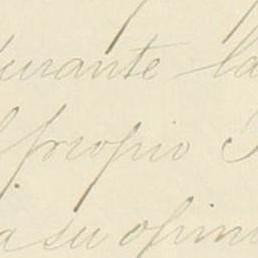 durante la
propio
a su opini